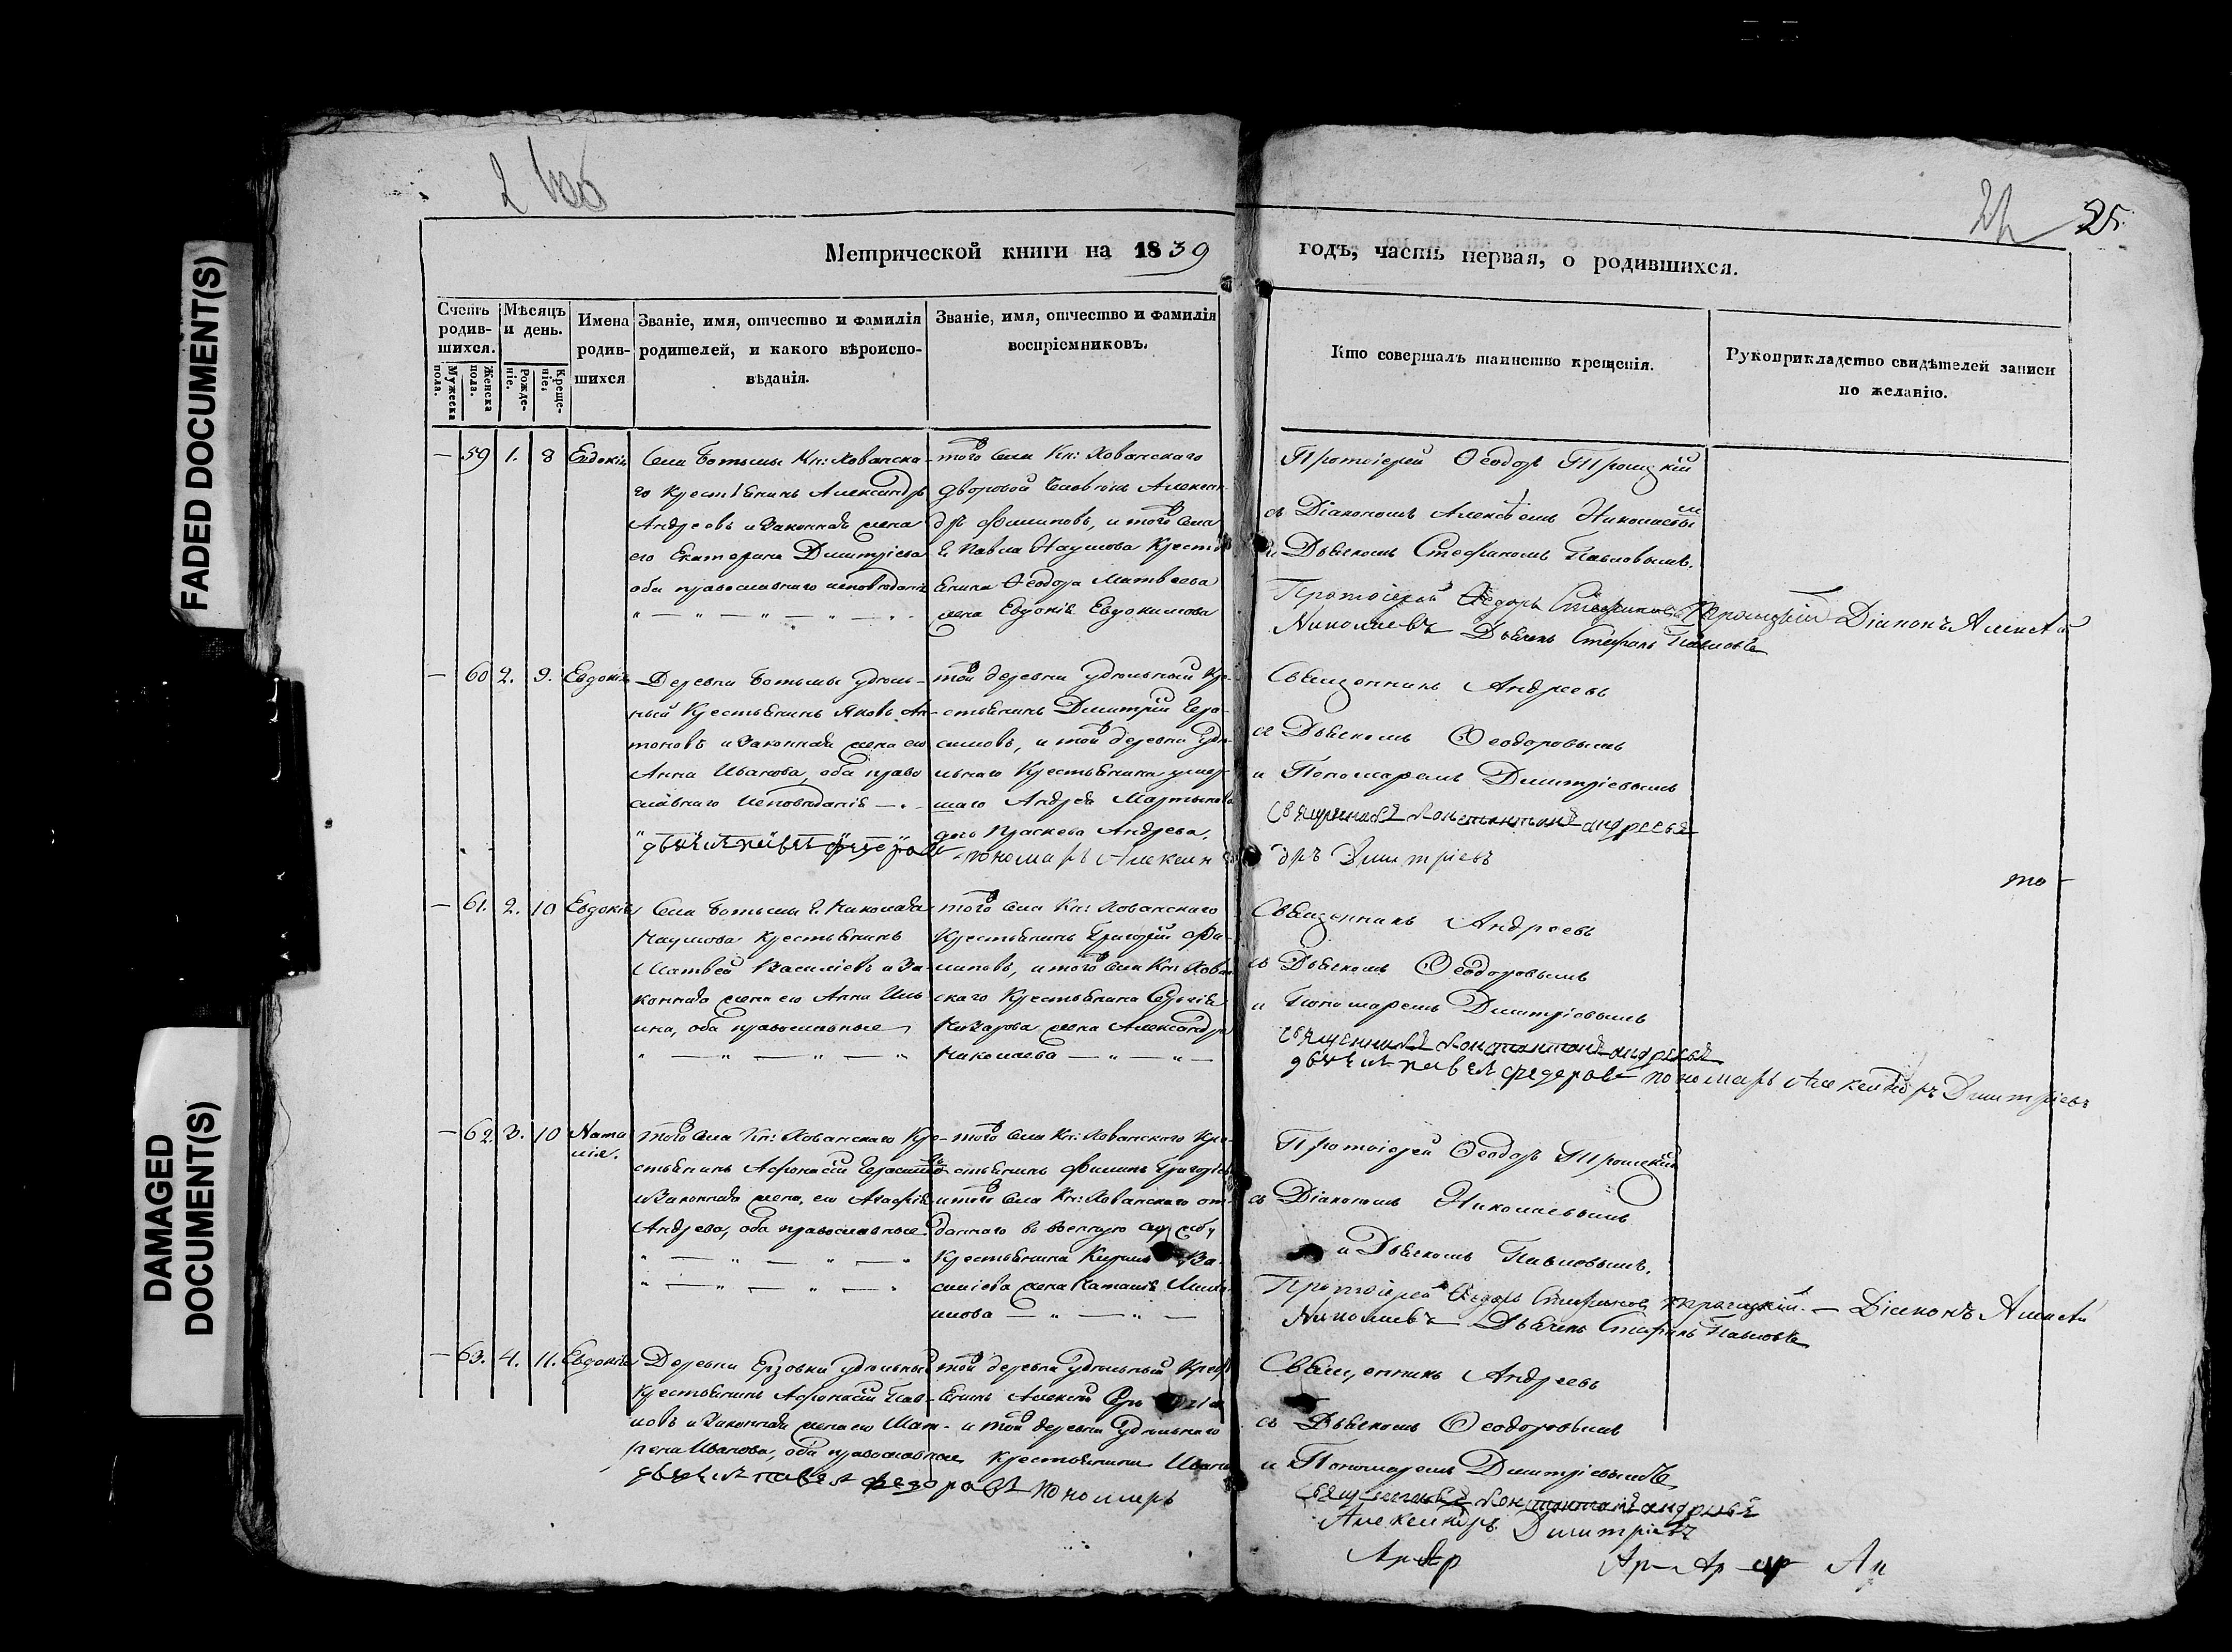 FADED DOCUMENT(S)
DAMAGED
DOCUMENT(S)
25
Метрической книги на 1839
годъ, часть первая, о родившихся.
Счетъ родив-шихся.
Мужеска пола.
Женска пола.
Мѣсяцъ и день.
Рожде-ніе.
Креще-ніе.
Имена родив-шихся
Званіе, имя, отчество и фамилія
родителей, и какого вѣроиспо-
вѣданія.
Званіе, имя, отчество и фамилія
воспріемниковъ.
Кто совершалъ таинство крещенія.
Рукоприкладство свидѣтелей записи
по желанію.
— 59 1. 8 Евдокія
Села Ботьмы Кн: Хованска-
го крестьянинъ Александръ
Андреевъ и законная жена
его Екатерина Димитріева
оба православнаго исповѣданія
того села Кн: Хованскаго
дворовой человѣкъ Алексан-
дръ Филиповъ, и того села
Г. Павла Наумова кресть-
янина Ѳеодора Матвеева
жена Евдокія Евдокимова
Протоіерей Ѳеодоръ Троицкій
съ Діакономъ Алексѣемъ Николаевым
и Дьячкомъ Стефаномъ Павловымъ.
Протоіерей Ѳедоръ Стефановъ Троицкій Діаконъ Алексѣй
Николаевъ Дьячекъ Стефанъ Павловъ
— 60 2. 9. Евдокія
Деревни Ботьмы удѣль-
ный крестьянинъ Яковъ Ан-
тоновъ и законная жена его
Анна Иванова, оба право
славнаго исповѣданія
той деревни удѣльный кре-
стьянинъ Димитрій Гера-
симовъ, и той деревни удѣ-
льнаго крестьянина умер-
шаго Андрея Мартынова
дочь Праскева Андреева.
Священникъ Андреевъ
съ Дьячкомъ Ѳеодоровымъ
и Пономаремъ Димитріевымъ
Священникъ Константинъ Андреевъ
дьячекъ павелъ федоровъ пономарь Алексан
дръ Димитріевъ
— 61. 2. 10 Евдокія
Села Ботьмы Г. Николая
Наумова крестьянинъ
Матвей Василіевъ и за-
конная жена его Анна Иль
ина, оба православные
того села Кн: Хованскаго
крестьянинъ Григорій Фи-
липовъ, и того села Кн: Хован
скаго крестьянина Сергія
Назарова жена Александра
Николаева
Священникъ Андреевъ
съ Дьячкомъ Ѳеодоровымъ
и Пономаремъ Димитріевымъ
священникъ Константинъ андреевъ
дьячекъ павелъ федоровъ пономарь Александръ Димитріевъ
— 62. 3. 10 Ната
лія.
того села Кн: Хованскаго кре-
стьянинъ Афонасій Герасимовъ
и законная жена его Агафія
Андреева, оба православные
того села Кн: Хованскаго кре-
стьянинъ Филипъ Григорьевъ
и того села Кн: Хованскаго от-
даннаго въ военную службу
крестьянина Кирила Ва-
силіева жена Наталія
Протоіерей Ѳеодоръ Троицкій
съ Діакономъ Николаевымъ
и Дьячкомъ Павловымъ.
Протоіерей Ѳедоръ Стефановъ Троицкій. — Діаконъ Алексѣй
Николаевъ Дьячекъ Стефанъ Павловъ
— 63. 4. 11. Евдокія
Деревни Ерзовки удѣльный
крестьянинъ Афонасій Пав-
ловъ и законная жена его Мат-
рена Иванова, оба православные
той деревни удѣльный крест
янинъ Алексей
и той деревни удѣльнаго
крестьянина Ивана
Священникъ Андреевъ
съ Дьячкомъ Ѳеодоровымъ
и Пономаремъ Димитріевымъ
священникъ Константинъ андреевъ
дьячекъ павелъ федоровъ пономарь
Александръ Димитріевъ